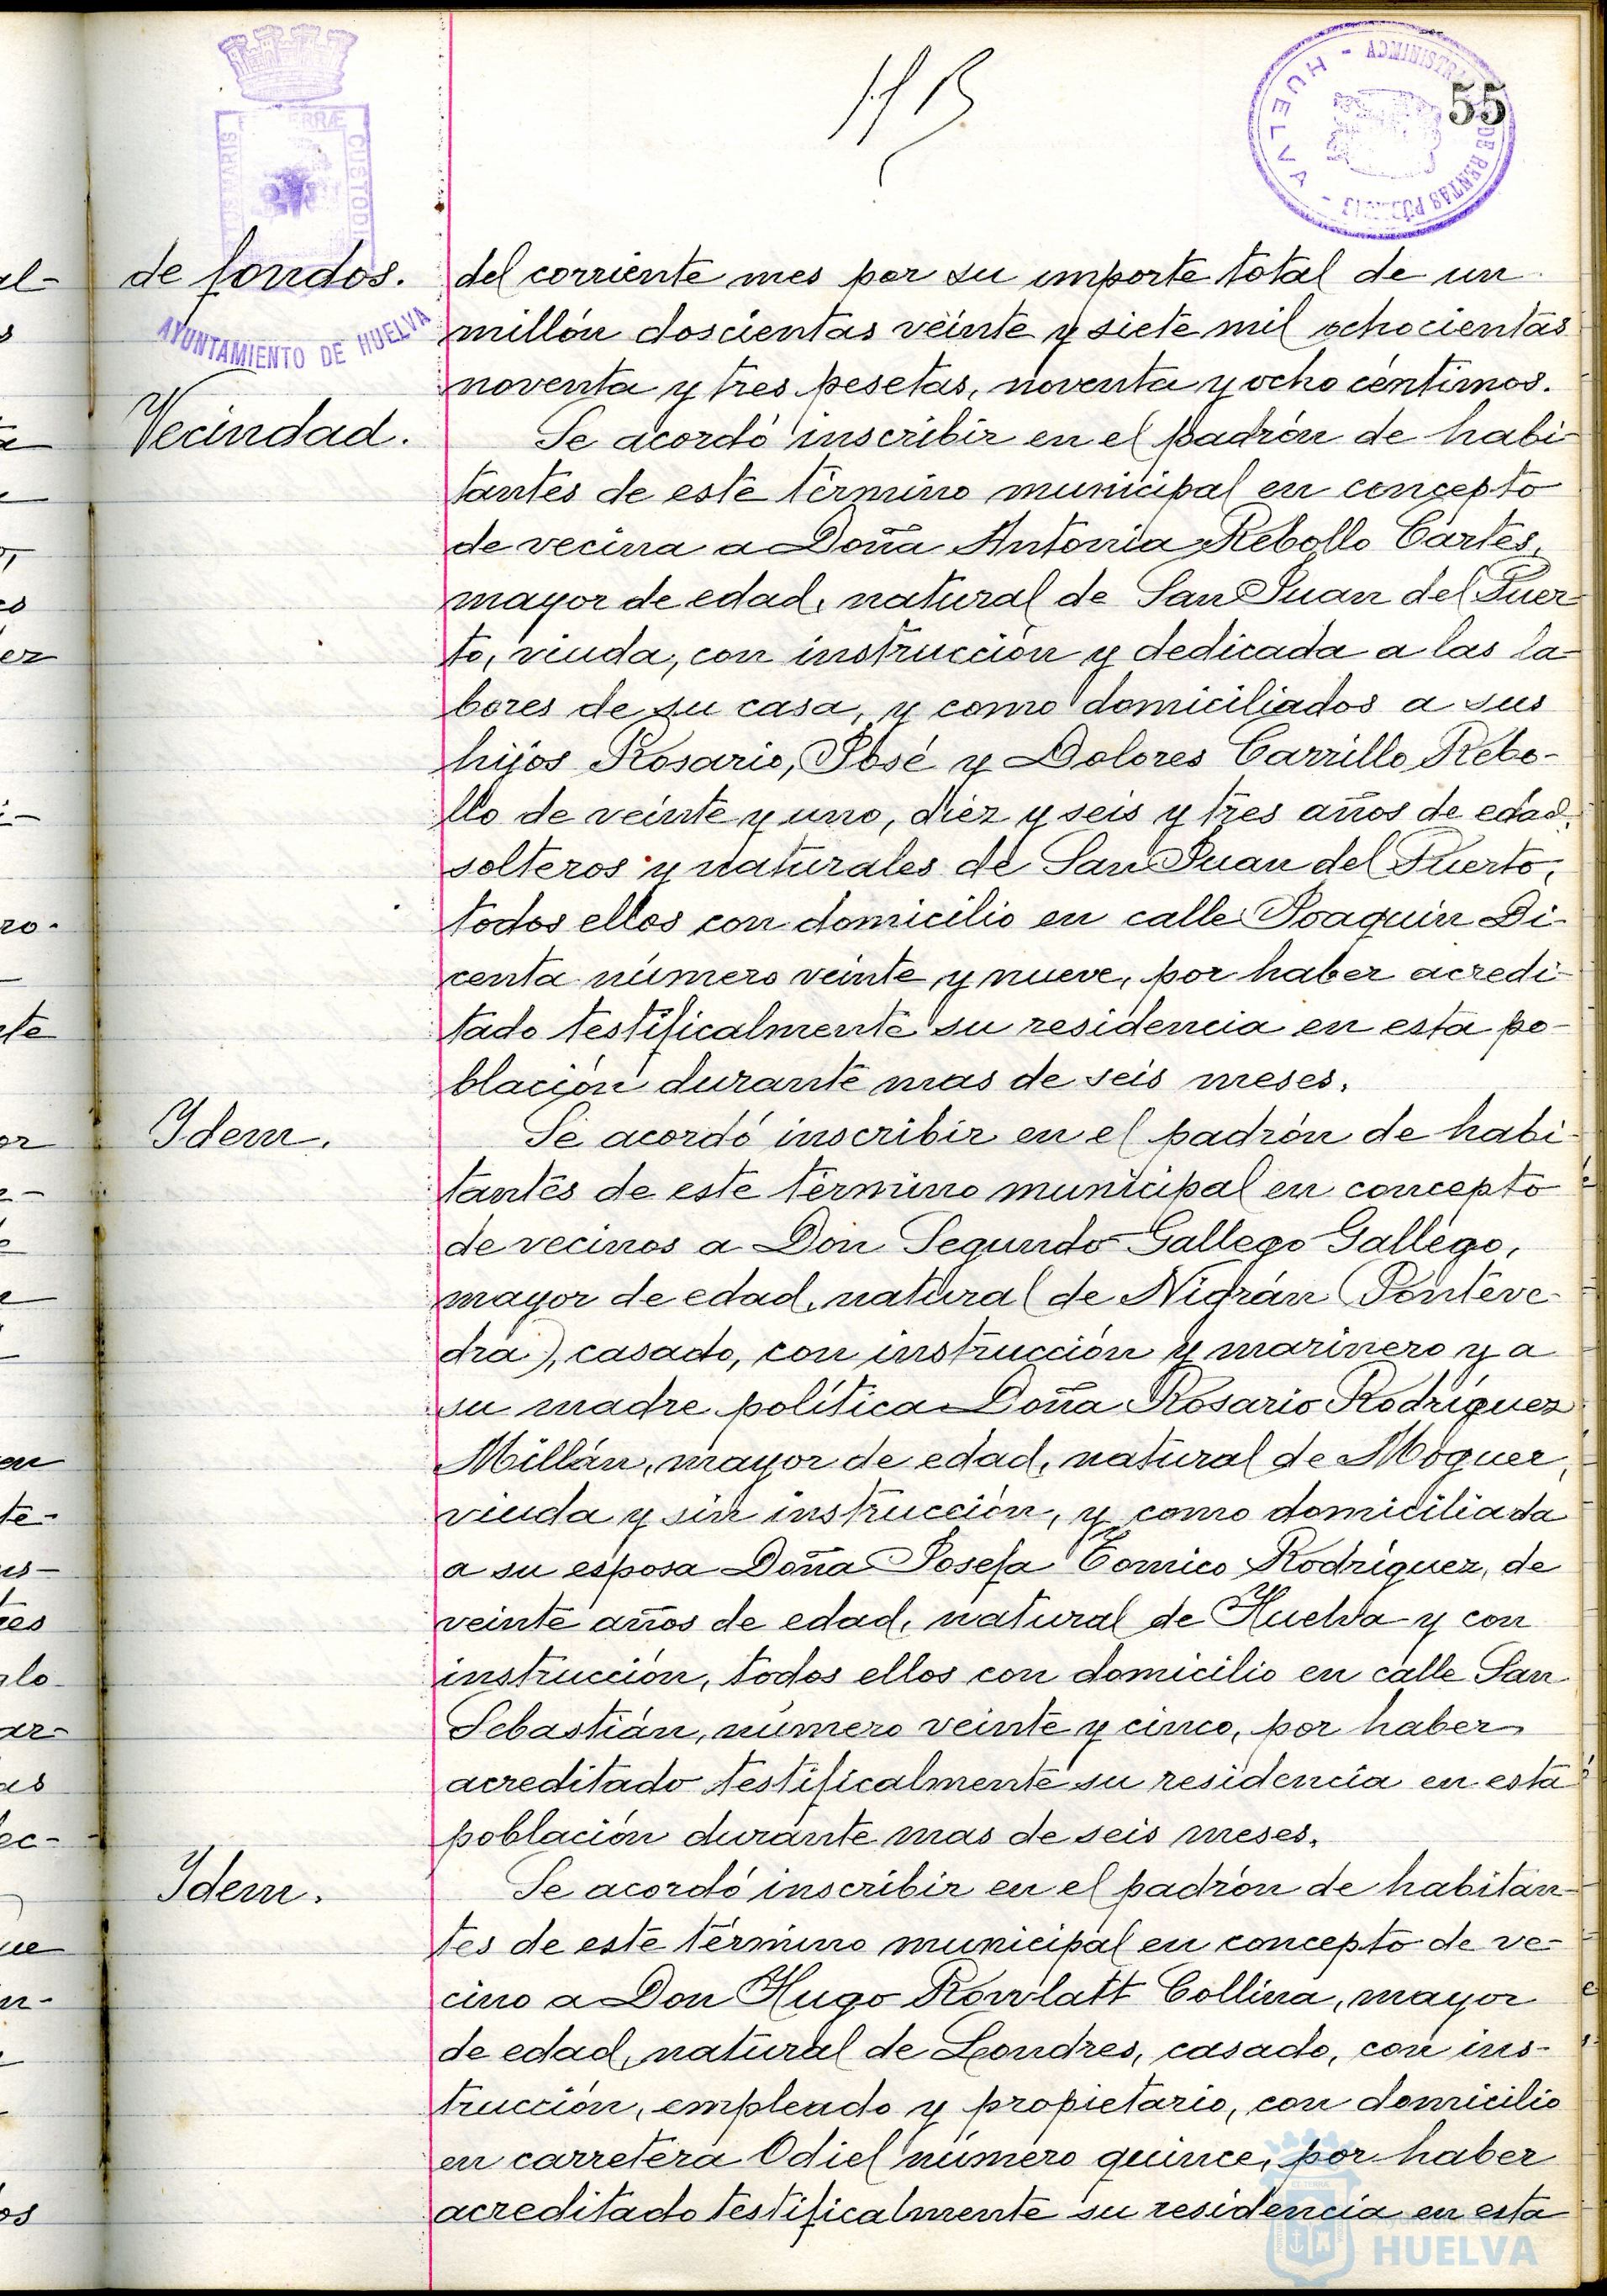 55
HUELVA
ADMINISTRA DE RENTAS PÚBLICAS
CUSTODI
AYUNTAMIENTO DE HUELVA
de fondos.
del corriente mes por su importe total de un
millón doscientas veinte y siete mil ochocientas
noventa y tres pesetas, noventa y ocho centimos.
Vecindad.
Se acordó inscribir en el padrón de habi-
tantes de este término municipal en concepto
de vecina a Doña Antonia Rebollo Cartes,
mayor de edad, natural de San Juan del Puer-
to, viuda, con instrucción y dedicada a las la-
bores de su casa, y como domiciliados a sus
hijos Rosario, José y Dolores Carrillo Rebo-
llo de veinte y uno, diez y seis y tres años de edad,
solteros y naturales de San Juan del Puerto,
todos ellos con domicilio en calle Joaquin Di-
centa número veinte y nueve, por haber acredi-
tado testificalmente su residencia en esta po-
blación durante mas de seis meses.
Idem.
Se acordó inscribir en el padrón de habi-
tantes de este término municipal en concepto
de vecinos a Don Segundo Gallego Gallego,
mayor de edad, natural de Nigrán (Ponteve-
dra), casado, con instrucción y marinero y a
su madre política Doña Rosario Rodríguez
Millán, mayor de edad, natural de Moguer,
viuda y sin instrucción, y como domiciliada
a su esposa Doña Josefa Cornico Rodríguez, de
veinte años de edad, natural de Huelva y con
instrucción, todos ellos con domicilio en calle San
Sebastián, número veinte y cinco, por haber
acreditado testificalmente su residencia en esta
población durante mas de seis meses.
Idem.
Se acordó inscribir en el padrón de habitan-
tes de este término municipal en concepto de ve-
cino a Don Hugo Rowlatt Collina, mayor
de edad, natural de Londres, casado, con ins-
trucción, empleado y propietario, con domicilio
en carretera Odiel número quince, por haber
acreditado testificalmente su residencia en esta
HUELVA